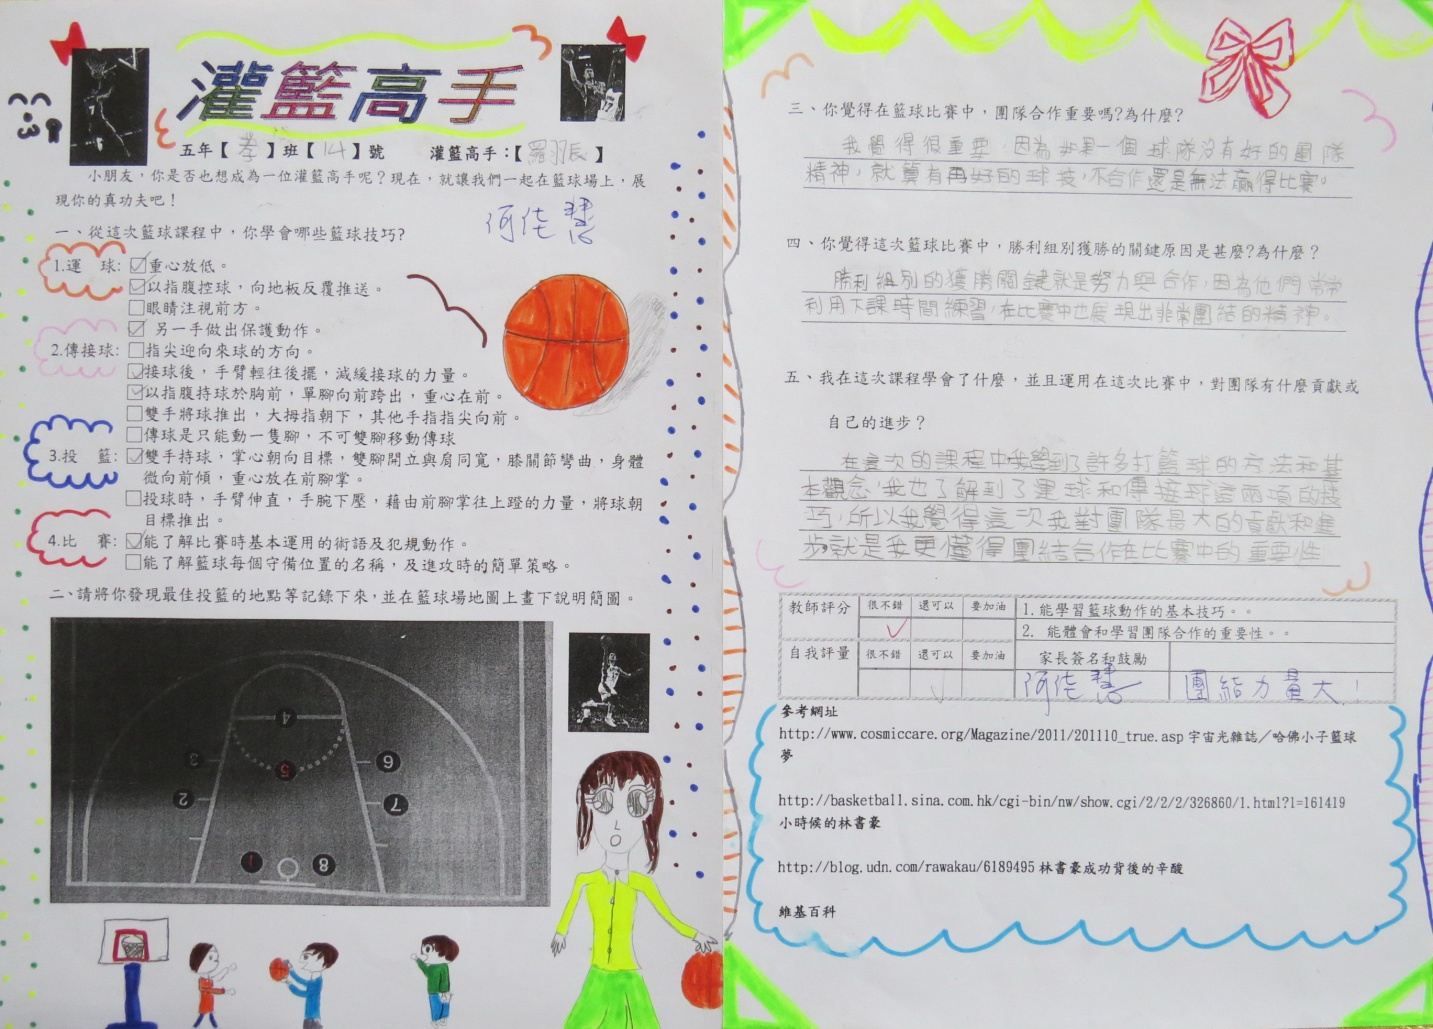 灌籃高手
五年【孝】班【14】號 灌籃高手:【羅羽辰】
小朋友，你是否也想成為一位灌籃高手呢？現在，就讓我們一起在籃球場上，展
現你的真功夫吧！
何佳慧
一、從這次籃球課程中，你學會哪些籃球技巧?
1.運 球: ☑重心放低。
☑以指腹控球，向地板反覆推送。
□眼睛注視前方。
☑ 另一手做出保護動作。
2.傳接球: □指尖迎向來球的方向。
☑接球後，手臂輕往後擺，減緩接球的力量。
☑以指腹持球於胸前，單腳向前跨出，重心在前。
□雙手將球推出，大拇指朝下，其他手指指尖向前。
□傳球是只能動一隻腳，不可雙腳移動傳球
3.投 籃: ☑雙手持球，掌心朝向目標，雙腳開立與肩同寬，膝關節彎曲，身體
微向前傾，重心放在前腳掌。
□投球時，手臂伸直，手腕下壓，藉由前腳掌往上蹬的力量，將球朝
目標推出。
4.比 賽: ☑能了解比賽時基本運用的術語及犯規動作。
□能了解籃球每個守備位置的名稱，及進攻時的簡單策略。
二、請將你發現最佳投籃的地點等記錄下來，並在籃球場地圖上畫下說明簡圖。
4
3 5 6
2 7
1 8
三、你覺得在籃球比賽中，團隊合作重要嗎?為什麼?
我覺得很重要，因為如果一個球隊沒有好的團隊
精神，就算有再好的球技，不合作還是無法贏得比賽。
四、你覺得這次籃球比賽中，勝利組別獲勝的關鍵原因是甚麼?為什麼？
勝利組別的獲勝關鍵就是努力與合作，因為他們常常
利用下課時間練習，在比賽中也展現出非常團結的精神。
五、我在這次課程學會了什麼，並且運用在這次比賽中，對團隊有什麼貢獻或
自己的進步？
在這次的課程中我學到了許多打籃球的方法和基
本觀念，我也了解到了運球和傳接球這兩項的技
巧，所以我覺得這次我對團隊最大的貢獻和進
步就是我更懂得團結合作在比賽中的重要性
教師評分 很不錯 還可以 要加油 1.能學習籃球動作的基本技巧。。
✓ 2. 能體會和學習團隊合作的重要性。。
自我評量 很不錯 還可以 要加油 家長簽名和鼓勵
✓ 何佳慧 團結力量大！
參考網址
http://www.cosmiccare.org/Magazine/2011/201110_true.asp 宇宙光雜誌／哈佛小子籃球
夢
http://basketball.sina.com.hk/cgi-bin/nw/show.cgi/2/2/2/326860/1.html?l=161419
小時候的林書豪
http://blog.udn.com/rawakau/6189495 林書豪成功背後的辛酸
維基百科